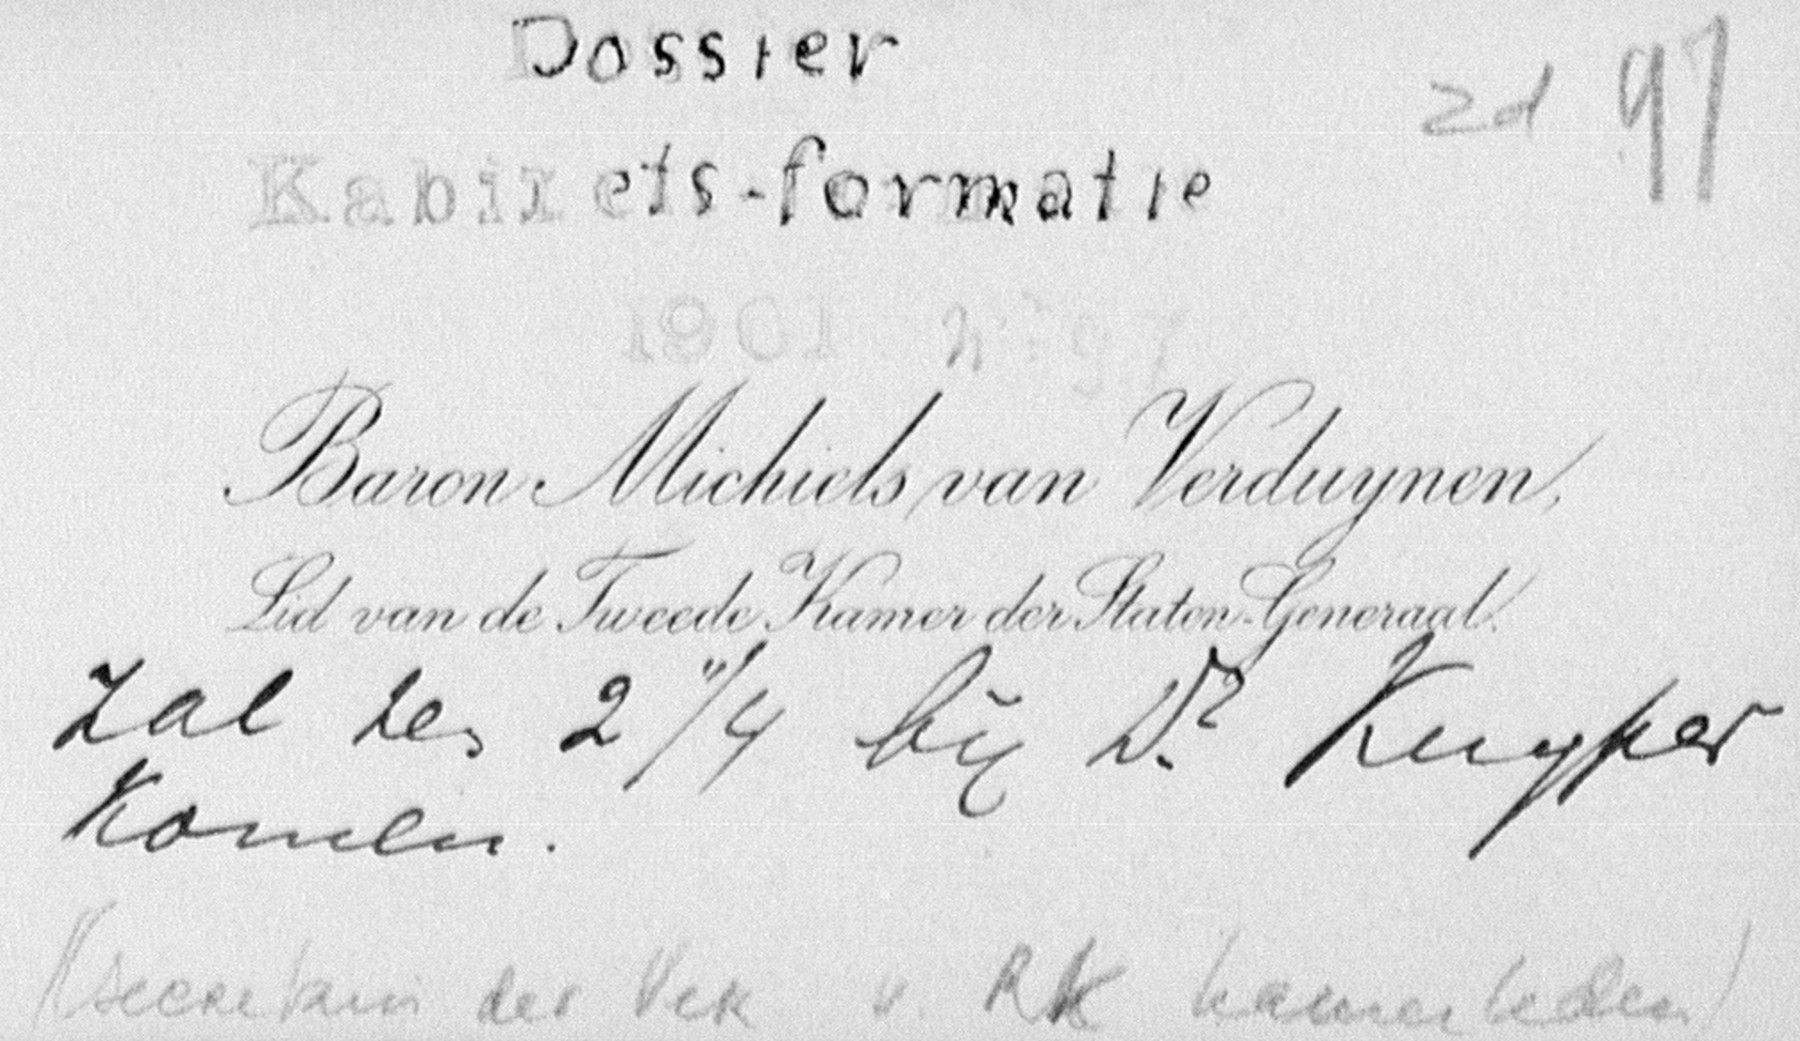 Dossier
zd 97
Kabinets-formatie
1901 n: 97
Baron Michiels van Verduynen,
Lid van de Tweede Kamer der Staten-Generaal.
Zal te 2 1/4 bij Dr. Kuyper
komen.
(secretaris der Ver v. RK kamerleden)